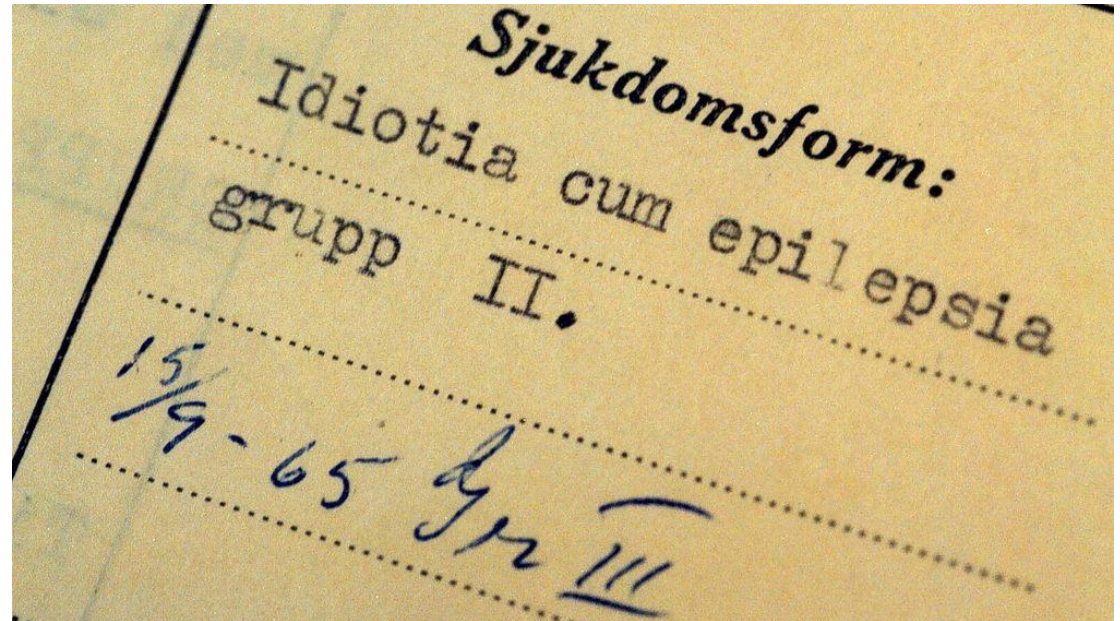 Sjukdomsform:
Idiotia cum epilepsia
grupp II.
15/9-65 Gr III